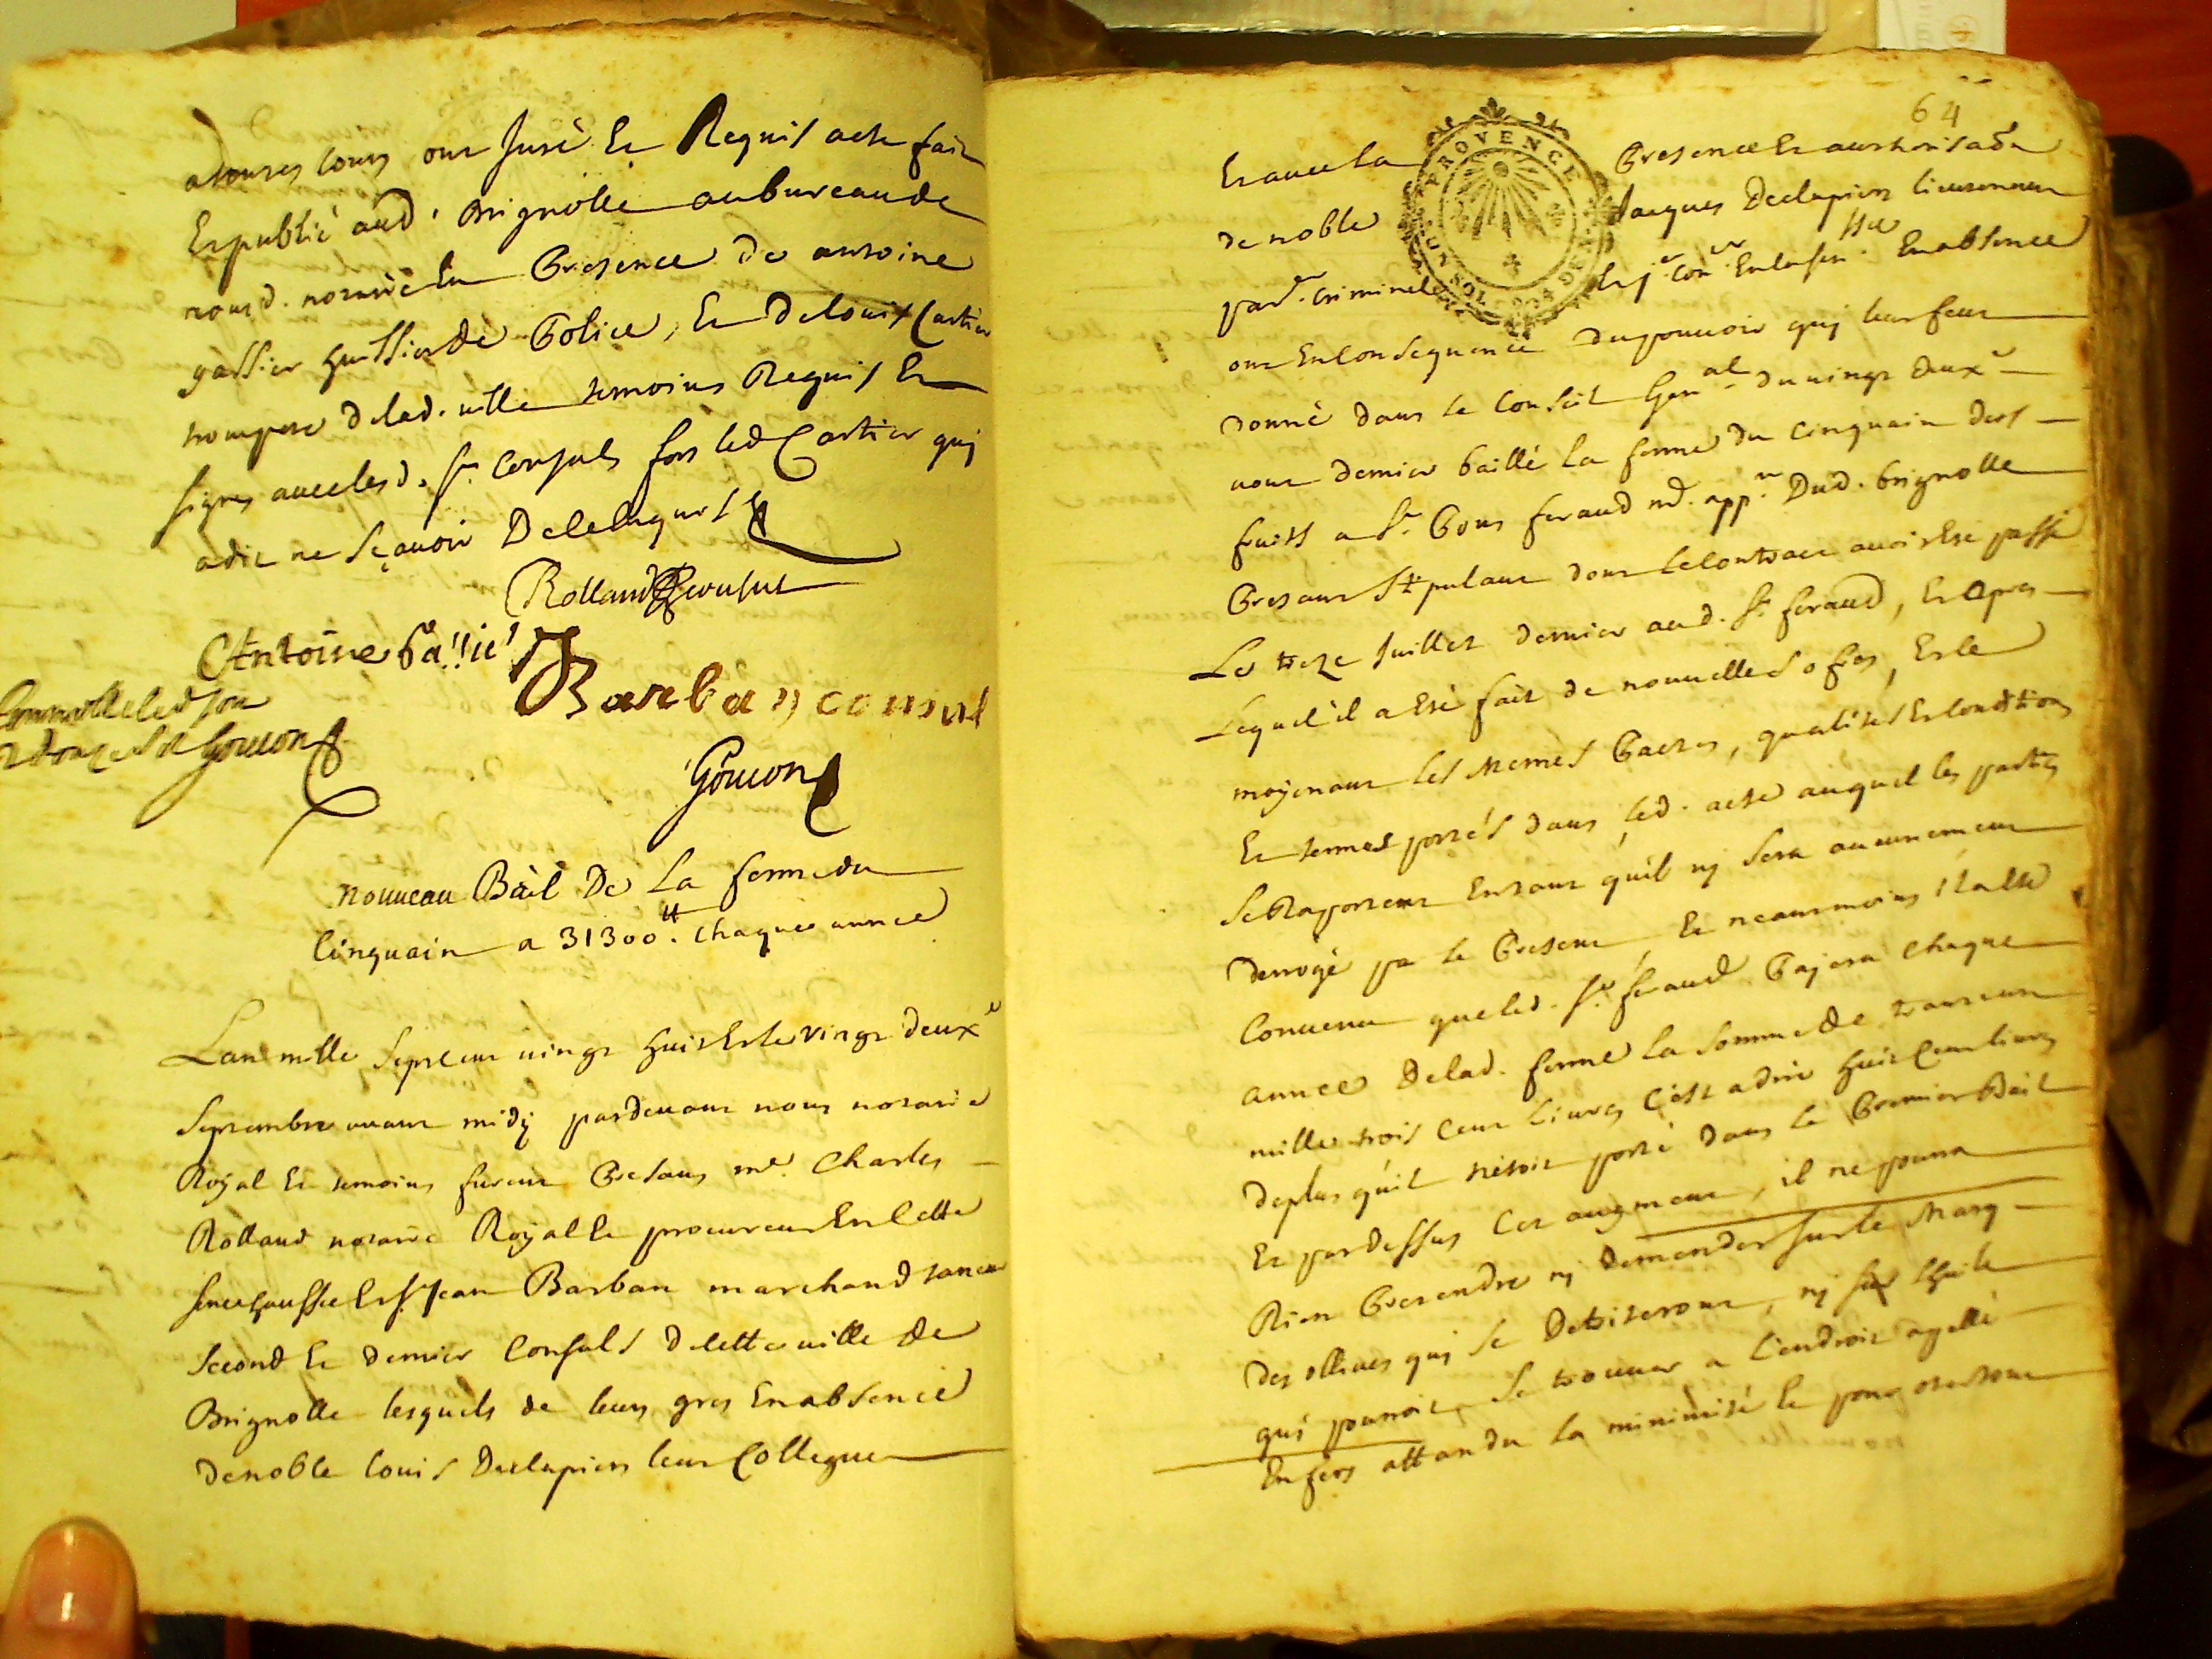 atoutes cours ont Juré Et Requis acte fait
Et publié aud. Brignolle au bureau de
nousd. notaire En Presence de antoine
gassier huissier de Police, Et de Louis Cartier
trompete delad. ville temoins Requis Et
signes avec lesd. srs. Consuls fors led Cartier quj
adit ne sçavoir
Rolland Consul
Antoine Gassier
Barban consul
Goujon
nouveau Bail De La ferme du
Cinquain a 31300 tt. chaque année
Lan mille sept cent vingt huit Et le vingt deuxe
septembre avant midy pardevant nous notaire
Royal Et temoins furent Presans me. Charles
Rolland notaire Royal Et procureur En cette
senechaussée Et sr. Jean Barban marchand taneur
second Et dernier Consuls de cette ville de
Brignolle lesquels de leurs gres En absence
de noble Louis Declapiers leur Collegue
64
Et avec la Presence Et authorisaõn
PROVENCE
de noble Jacques Declapiers lieutenant
part. criminel Et jer. Conr. En la senée. En absence
ont En Consequence du pouvoir quj leur feut
donné dans le Conseil Genal du vingt deuxe
aout dernier baillé La ferme du Cinquain des
fruits a sr. Pons feraud md. appre. Dud. brignolle
Present Stipulant dont le contract avoit Eté passé
Le treze Juillet dernier aud. sr. feraud, Et apres
Lequel il a Eté fait de nouvelles ofres, Et le
moyenant les Memes Pactes, qualités Et Conditions
Et termes portés dans led. acte auquel les parties
se Raportent Entant quil nj sera aucunement
derrogé par le Present, Et neantmoins Il a Eté
Convenu que led. sr. feraud Payera chaque
année Delad. ferme La somme de trante un
mille trois cent Livres C'est adire huit Cent livres
de plus qu'il n'etoit porté dans le Premier Bail
Et par dessus Cet augment, il ne pourra
Rien Pretendre nj Demander sur le Marq
Des ollives quj se Detriteront, nj sur Lhuile
quj pourroit se trouver a L'endroit apellé
Enfers attandu la minimité